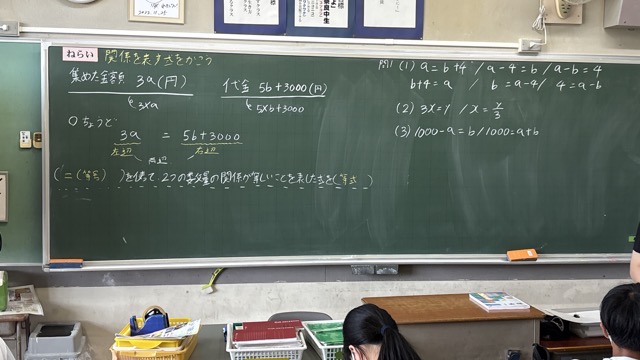 ねらい 関係を表す式をかこう
集めた金額 3a(円)
3×a
代金 5b+3000(円)
5×b+3000
○ちょうど
3a = 5b+3000
左辺 右辺
両辺
( =(等号) )を使って、2つの数量の関係が等しいことを表した式を( 等式 )
問1 (1) a=b+4 / a-4=b / a-b=4
b+4=a / b=a-4 / 4=a-b
(2) 3x=y / x=y/3
(3) 1000-a=b / 1000=a+b